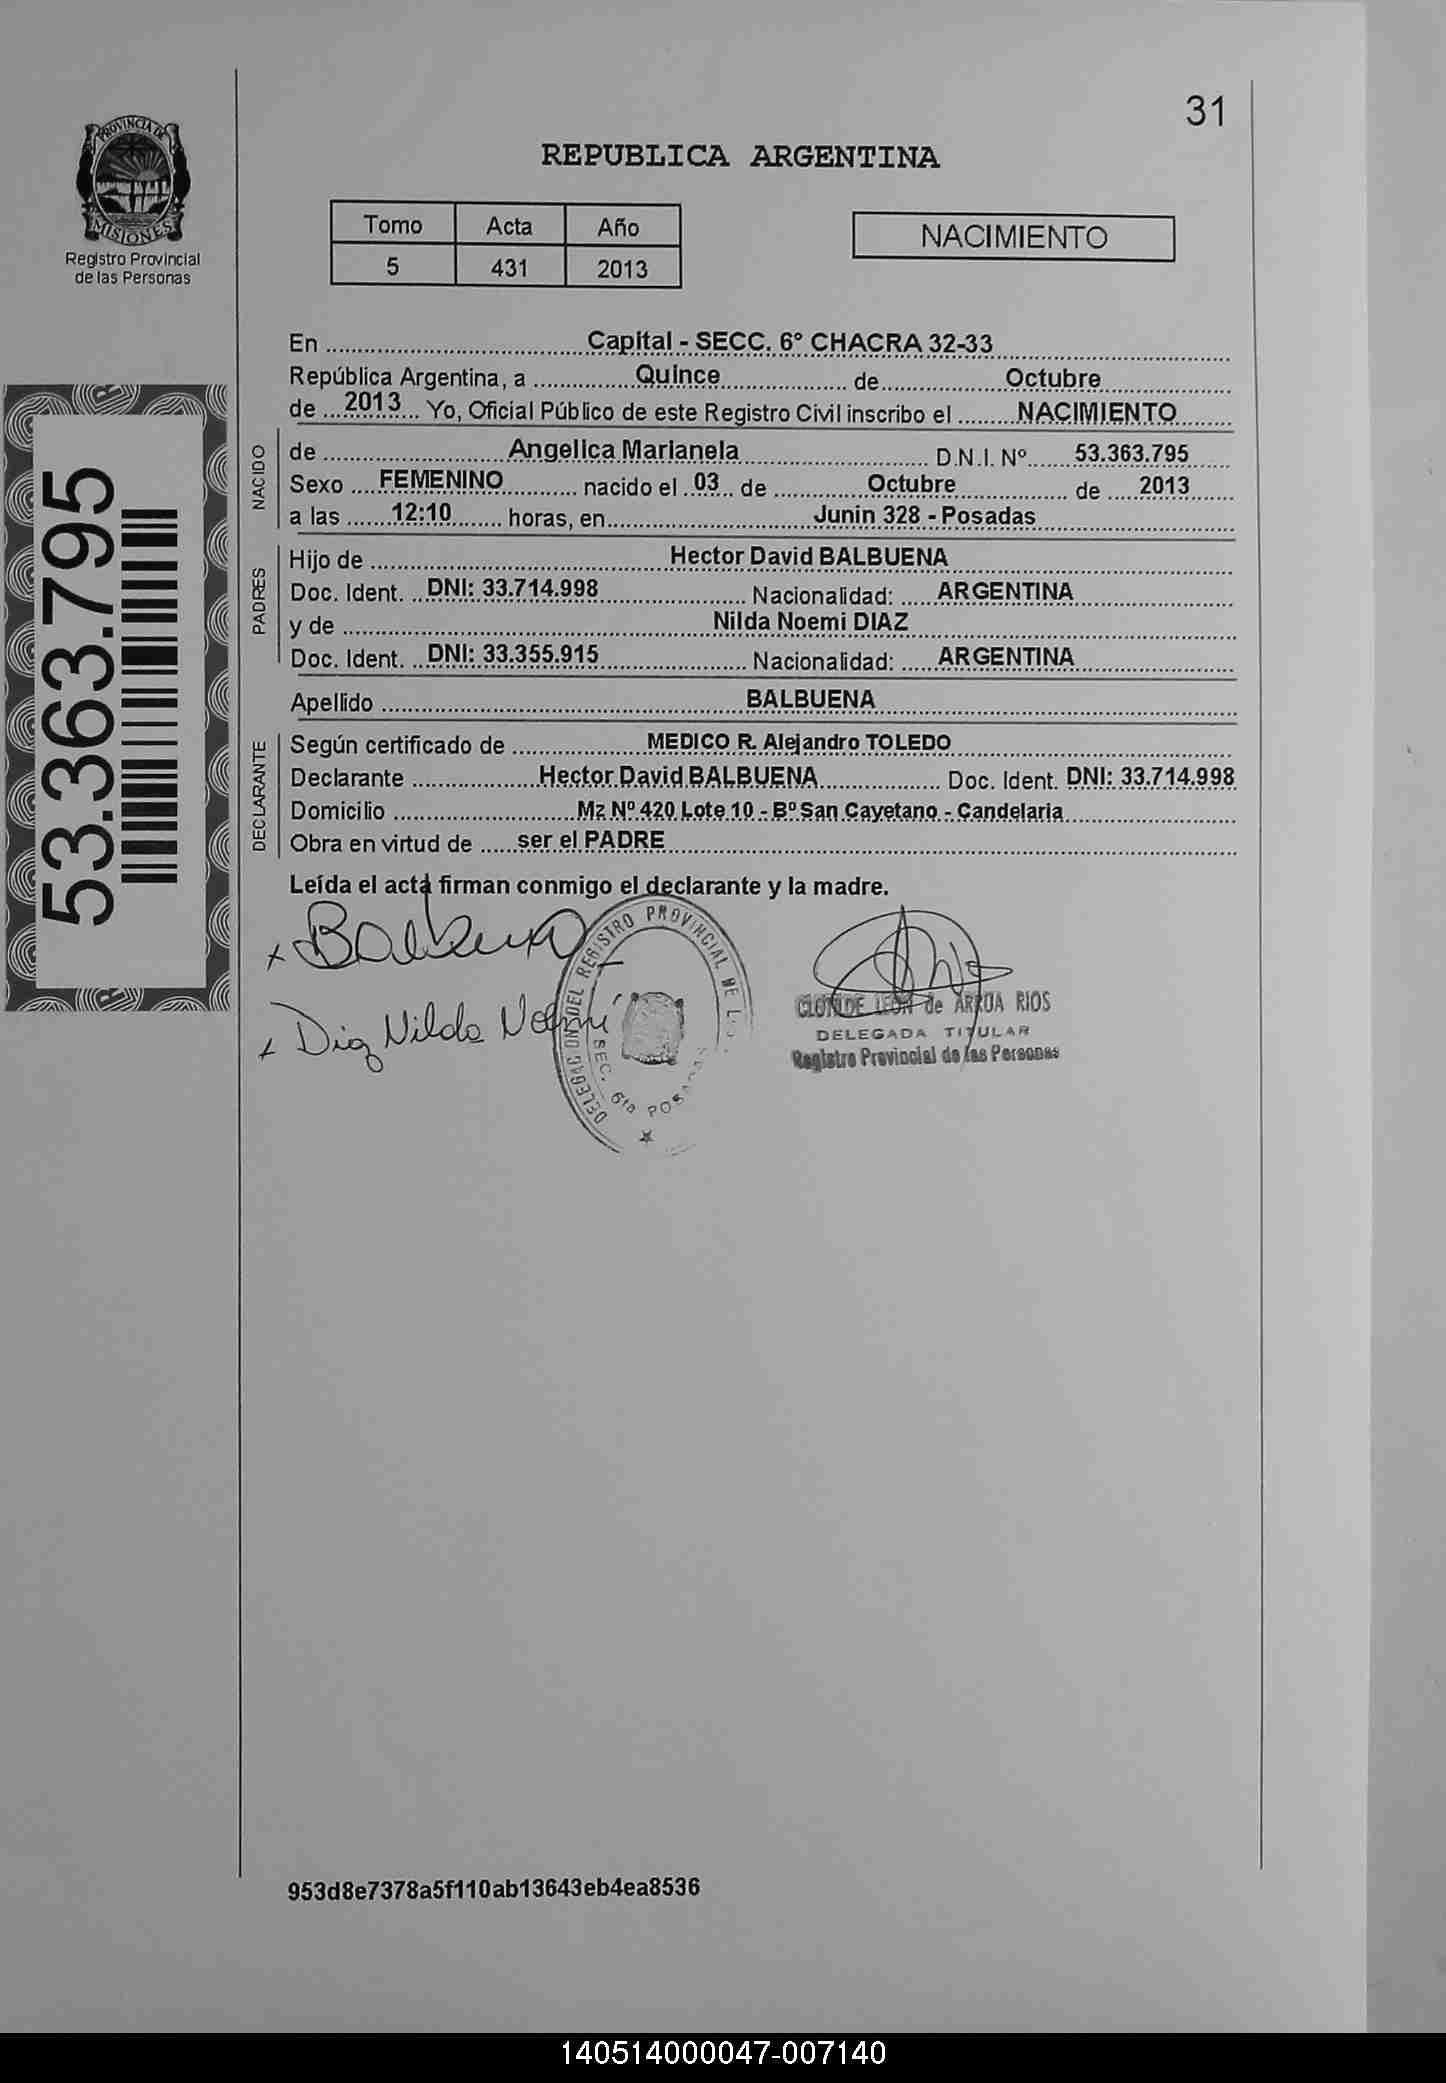 31
PROVINCIA DE
MISIONES
Registro Provincial
de las Personas
REPUBLICA ARGENTINA
Tomo Acta Año
5 431 2013
NACIMIENTO
53.363.795
En Capital - SECC. 6° CHACRA 32-33
República Argentina, a Quince de Octubre
de 2013 Yo, Oficial Público de este Registro Civil inscribo el NACIMIENTO
NACIDO
de Angelica Marianela D.N.I. Nº 53.363.795
Sexo FEMENINO nacido el 03 de Octubre de 2013
a las 12:10 horas, en Junin 328 - Posadas
PADRES
Hijo de Hector David BALBUENA
Doc. Ident. DNI: 33.714.998 Nacionalidad: ARGENTINA
y de Nilda Noemi DIAZ
Doc. Ident. DNI: 33.355.915 Nacionalidad: ARGENTINA
Apellido BALBUENA
DECLARANTE
Según certificado de MEDICO R. Alejandro TOLEDO
Declarante Hector David BALBUENA Doc. Ident. DNI: 33.714.998
Domicilio Mz Nº 420 Lote 10 - Bº San Cayetano - Candelaria
Obra en virtud de ser el PADRE
Leída el acta firman conmigo el declarante y la madre.
x Balbuena
x Diaz Nilda Noemí
DELEGACION DEL REGISTRO PROVINCIAL DE
SEC. 6ta POSADAS
CLOTILDE LEON de ARRUA RIOS
DELEGADA TITULAR
Registro Provincial de las Personas
953d8e7378a5f110ab13643eb4ea8536
140514000047-007140